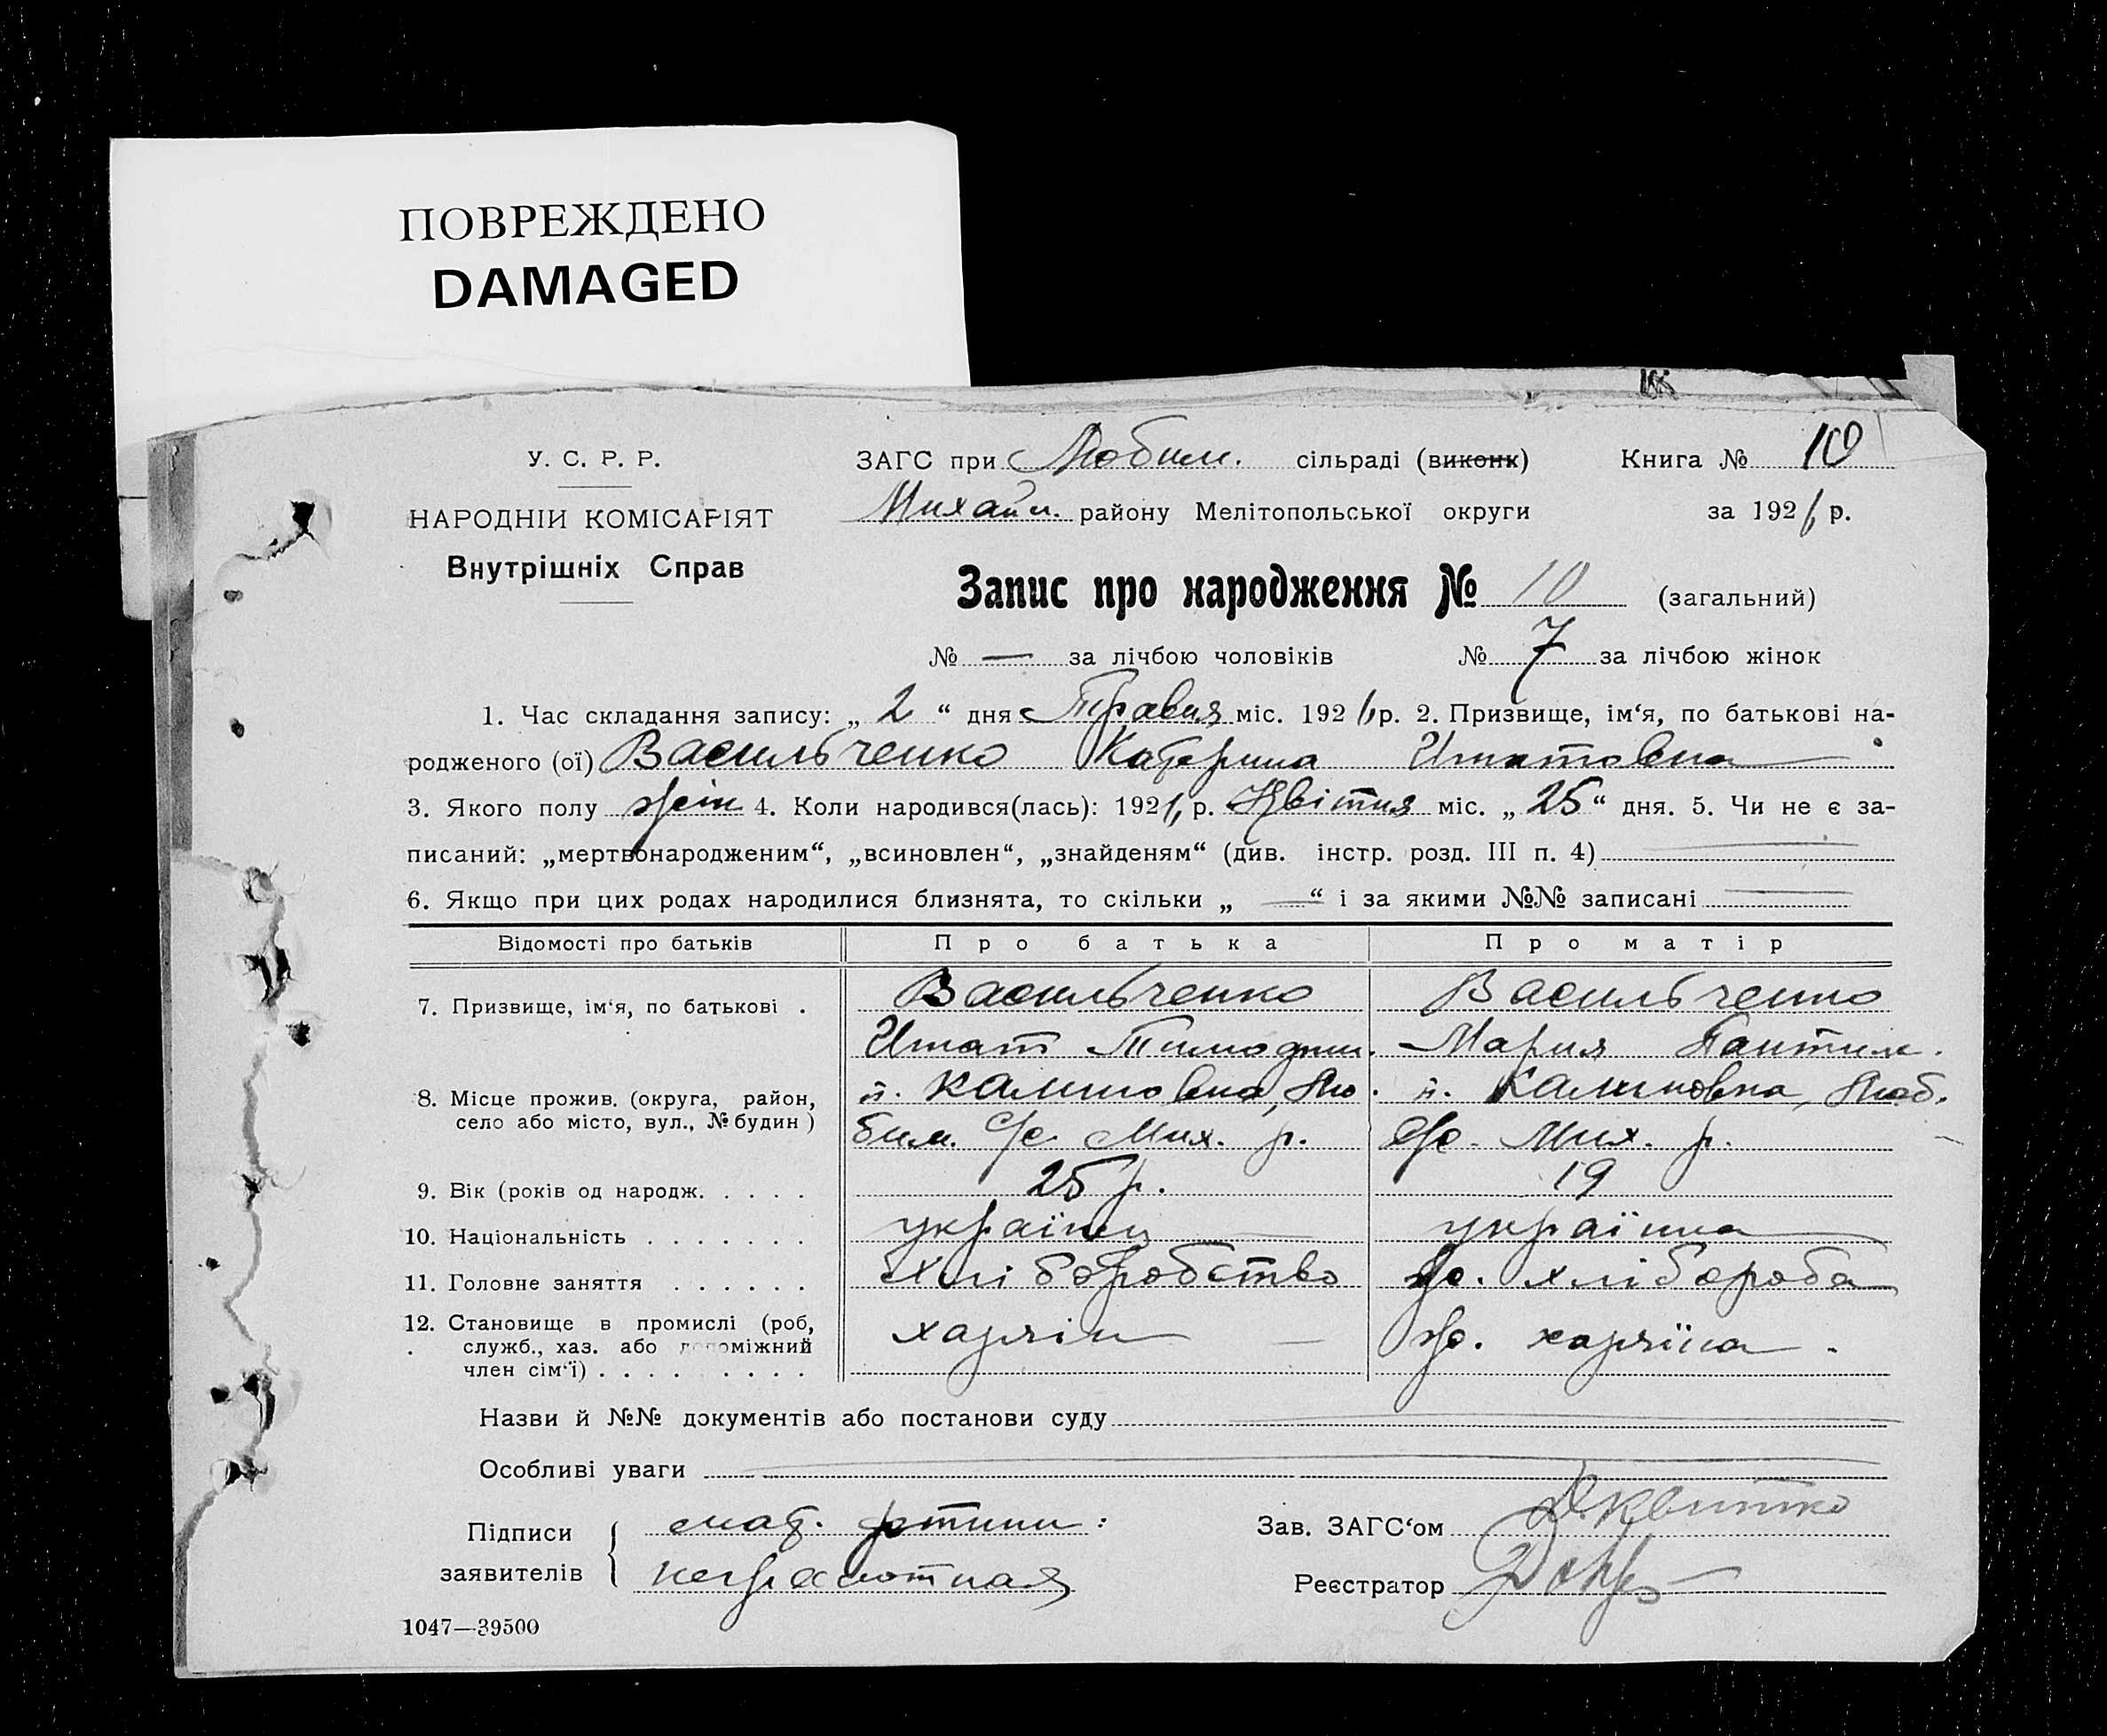 ПОВРЕЖДЕНО
DAMAGED
У. С. Р. Р.
НАРОДНІЙ КОМІСАРІЯТ
Внутрішніх Справ
ЗАГС при Любим. сільраді (виконк)
Книга № 10
Михайл. району Мелітопольської округи
за 192 р.
Запис про народження № 10 (загальний)
№ — за лічбою чоловіків № 7 за лічбою жінок
1. Час складання запису: „ 2 “ дня Травня міс. 192 р. 2. Призвище, ім‘я, по батькові на-
родженого (ої) Васильченко Катерина Игнатовна
3. Якого полу жін 4. Коли народився(лась): 192 р. Квітня міс. „ 25 “ дня. 5. Чи не є за-
писаний: „мертвонародженим“, „всиновлен“, „знайденям“ (див. інстр. розд. III п. 4)
6. Якщо при цих родах народилися близнята, то скільки „ — “ і за якими №№ записані
Відомості про батьків Про батька Про матір
7. Призвище, ім‘я, по батькові . Васильченко Васильченко
Игнат Тимофии. Мария Пантил.
8. Місце прожив. (округа, район, село або місто, вул., № будин) п. Калиновка, Лю- п. Калиновка, Люб.
бим. с/с Мих. р. с/с. Мих. р.
9. Вік (років од народж. . . . . 25 р. 19
10. Національність . . . . . . . українец українка
11. Головне заняття . . . . . . хліборобство ж. хлібороба
12. Становище в промислі (роб, служб., хаз. або допоміжний член сім‘ї) . . . . . . . . хазяін — ж. хазяїна .
Назви й №№ документів або постанови суду
Особливі уваги
Підписи заявителів мат. дитини:
неграмотная
Зав. ЗАГС‘ом Д Квитко
Реєстратор
1047—39500